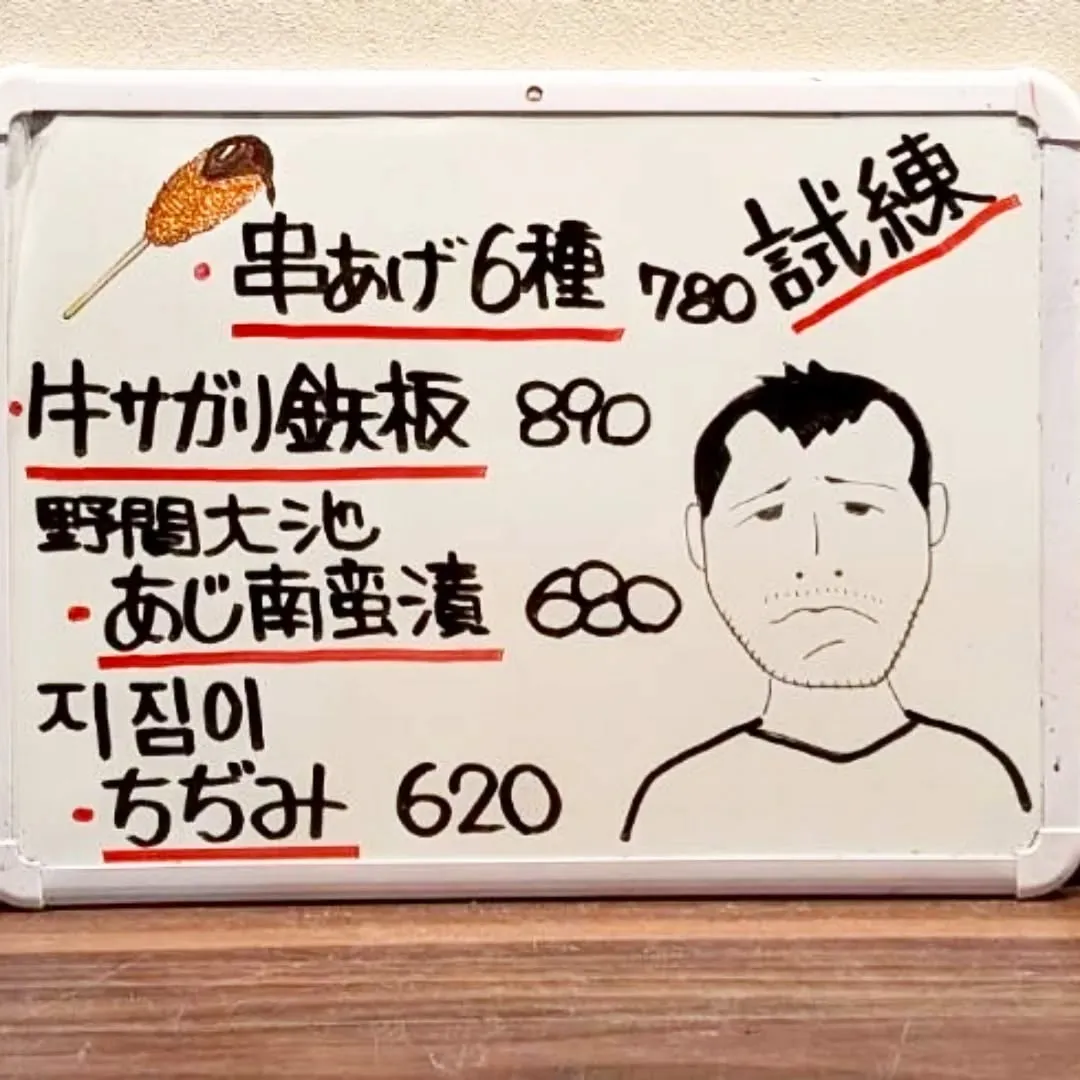 串あげ6種 780
試練
牛サガリ鉄板 890
野間大池
あじ南蛮漬 680
지짐이
ちぢみ 620